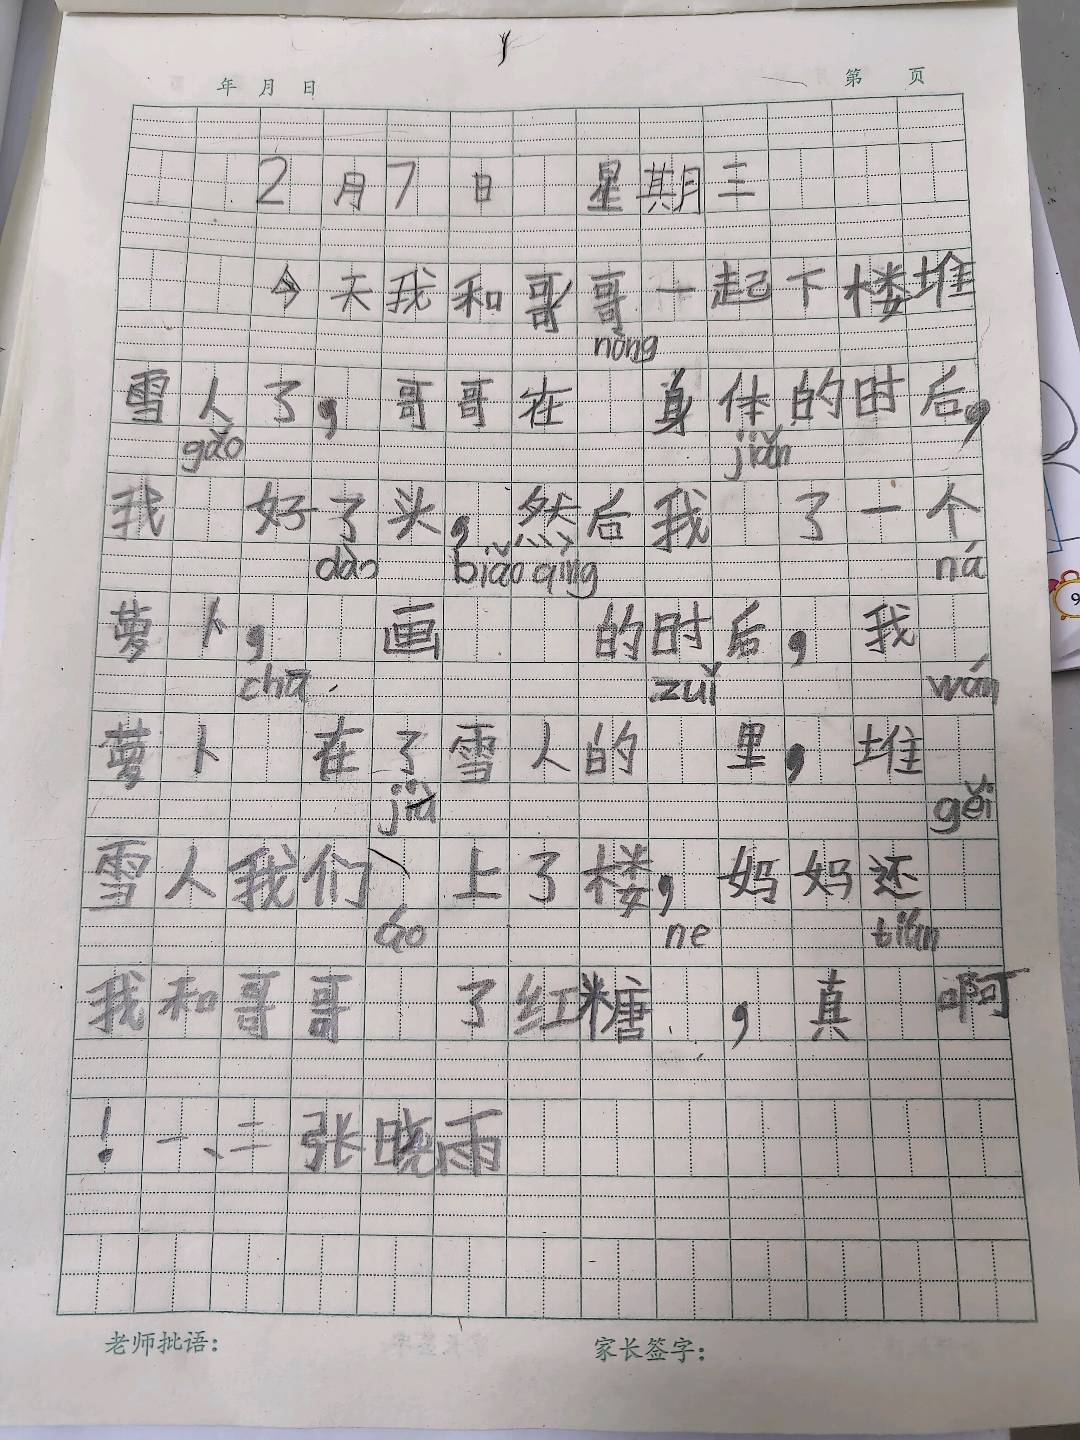 年 月 日 第 页
2月7日 星期三
今天我和哥哥一起下楼堆
nòng
雪人了，哥哥在 身体的时后，
gǎo jiǎn
我 好了头，然后我 了一个
dào biǎo qíng ná
萝卜， 画 的时后，我
chā zuǐ wán
萝卜 在了雪人的 里，堆
jiù gěi
雪人我们、 上了楼，妈妈还
áo ne tián
我和哥哥 了红糖 ，真 啊
！一、二张晓雨
老师批语： 家长签字：
9